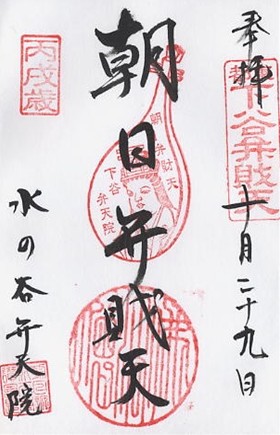 奉拝
下谷弁財天
十月二十九日
朝日弁財天
朝日弁財天
下谷
弁天院
丙戌歳
水の谷弁天院